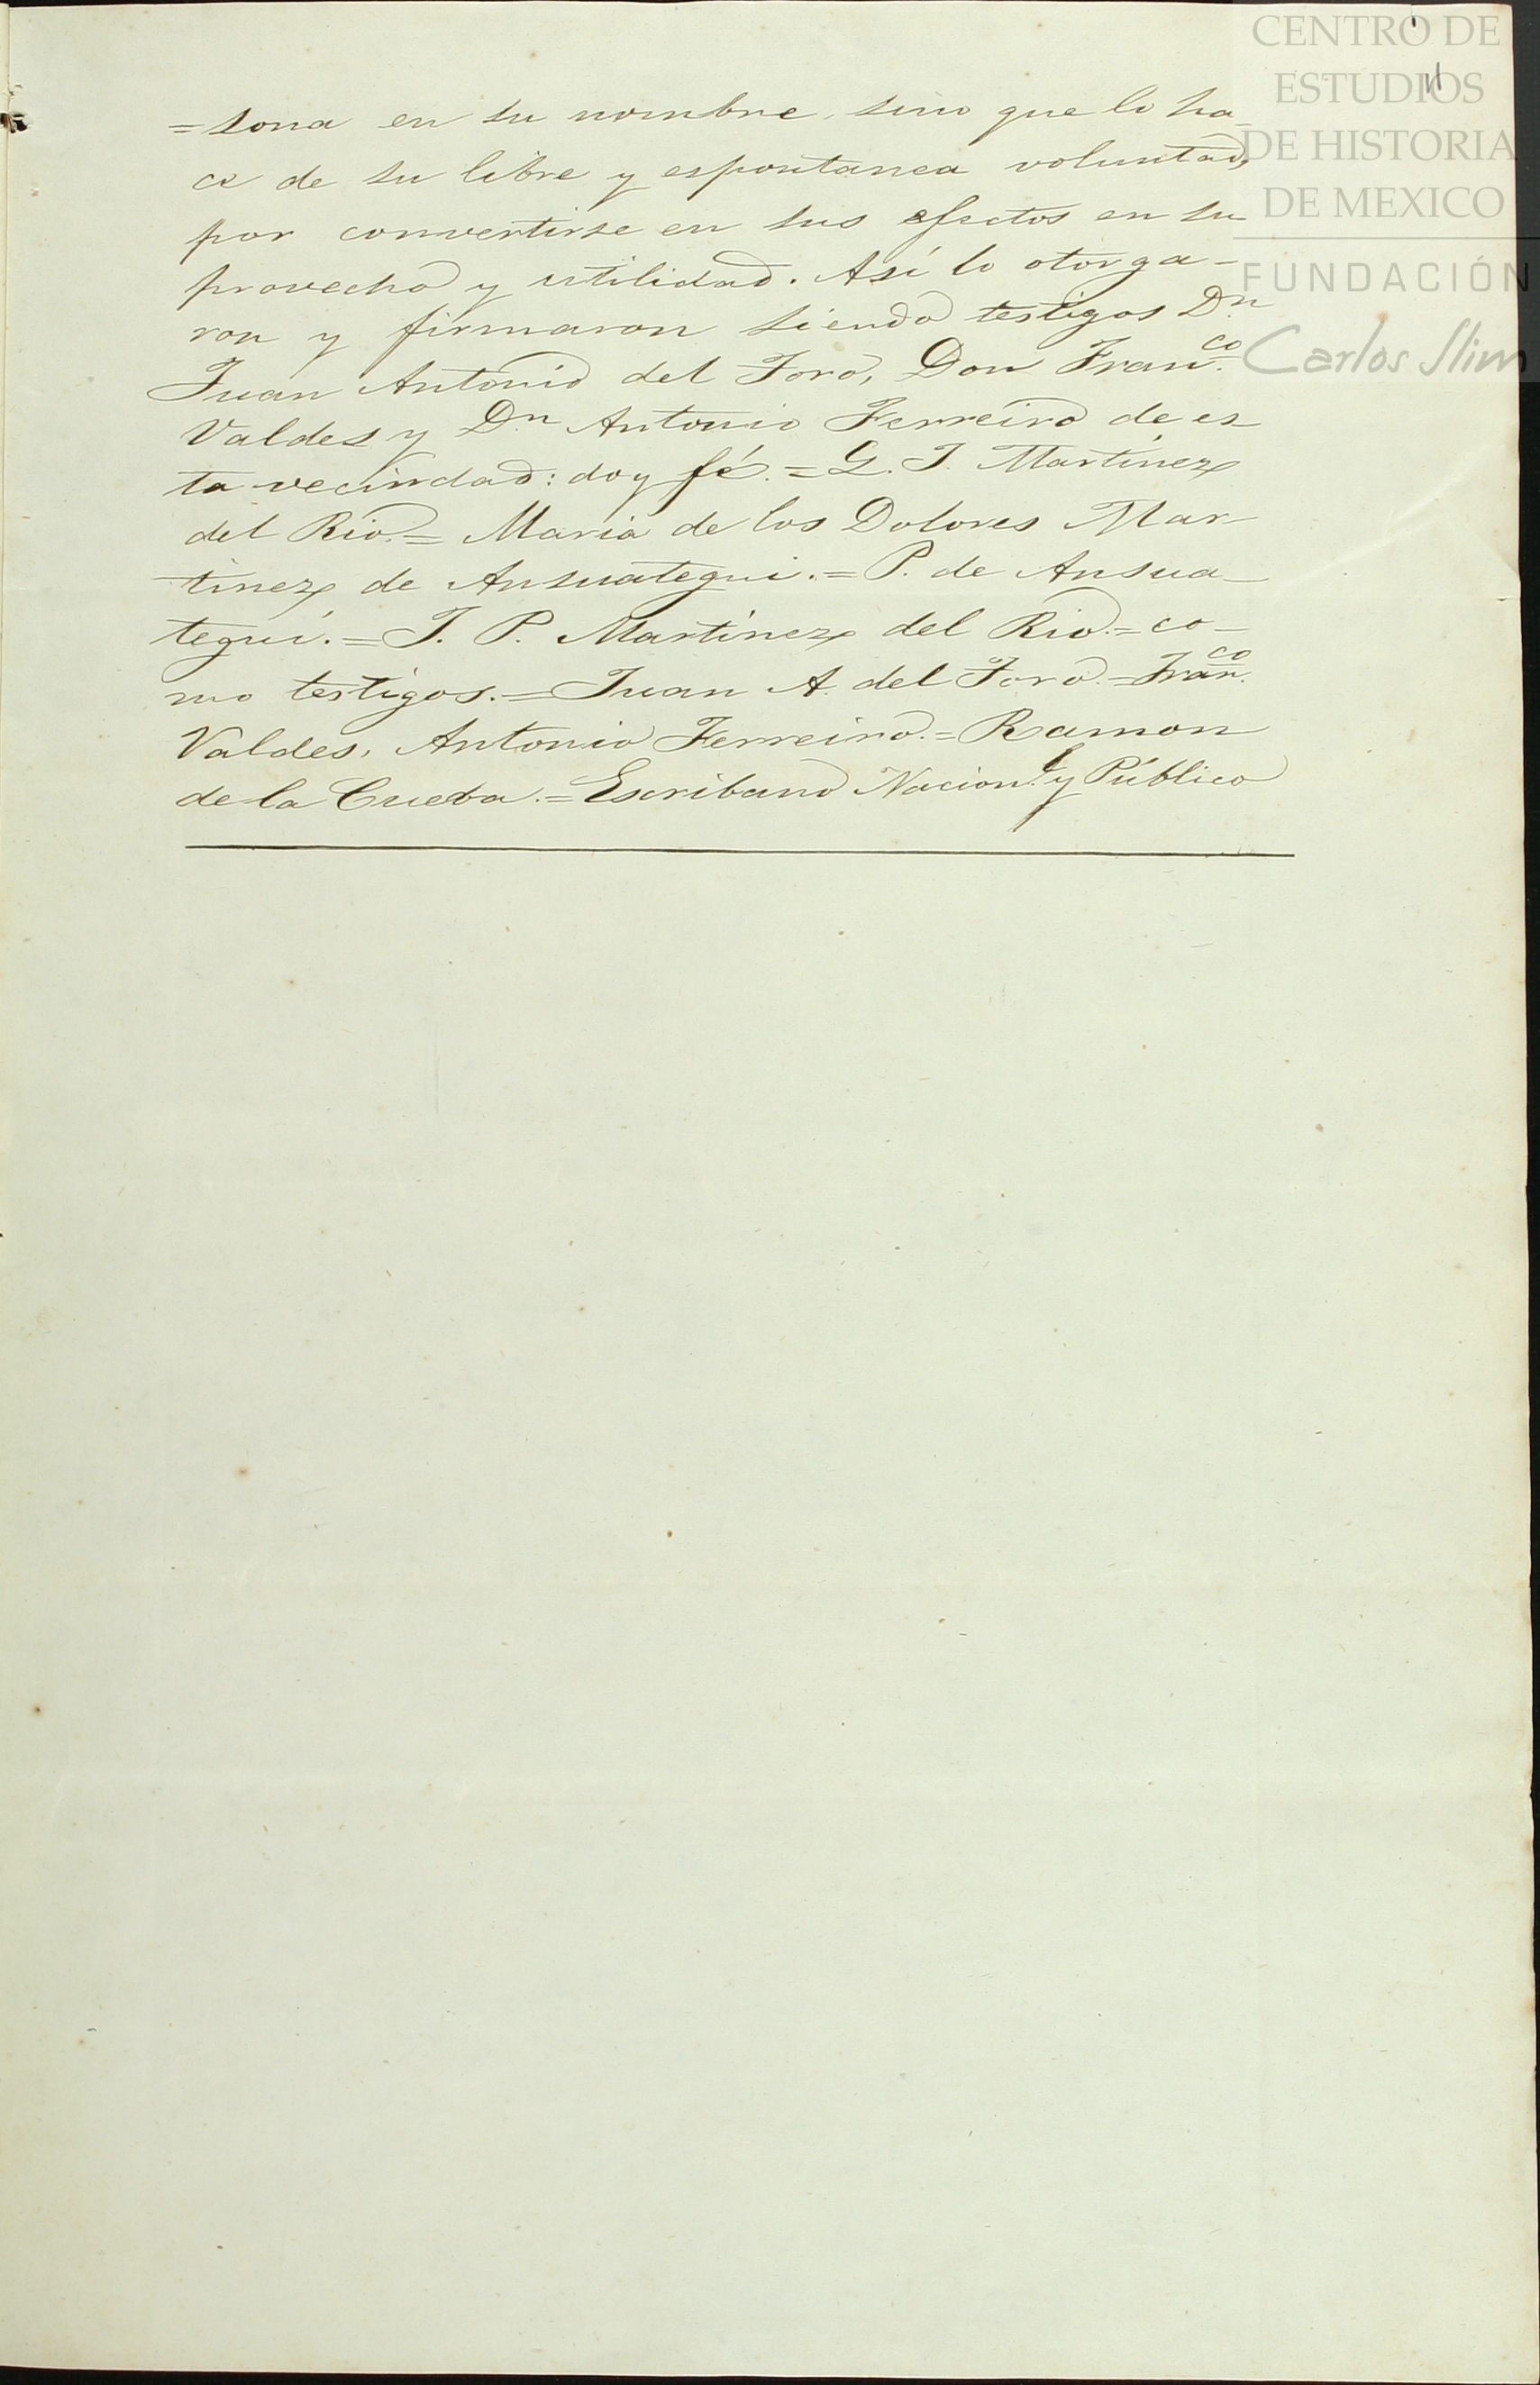 CENTRO DE
ESTUDIOS
DE HISTORIA
DE MEXICO
FUNDACIÓN
Carlos Slim
11
=sona en su nombre, sino que lo ha-
ce de su libre y espontanea voluntad,
por convertirse en sus efectos en su
provecho y utilidad. Así lo otorga-
ron y firmaron siendo testigos Dn
Juan Antonio del Toro, Don Franco.
Valdes y Dn Antonio Ferreiro de es-
ta vecindad: doy fé.=G. J. Martinez
del Rio.= Maria de los Dolores Mar-
tinez de Ansuategui.=P. de Ansua-
tegui.=J. P. Martinez del Rio.=co-
mo testigos.=Juan A. del Toro.=Franco.
Valdes, Antonio Ferreiro.=Ramon
de la Cueba.=Escribano Nacionl. y Público